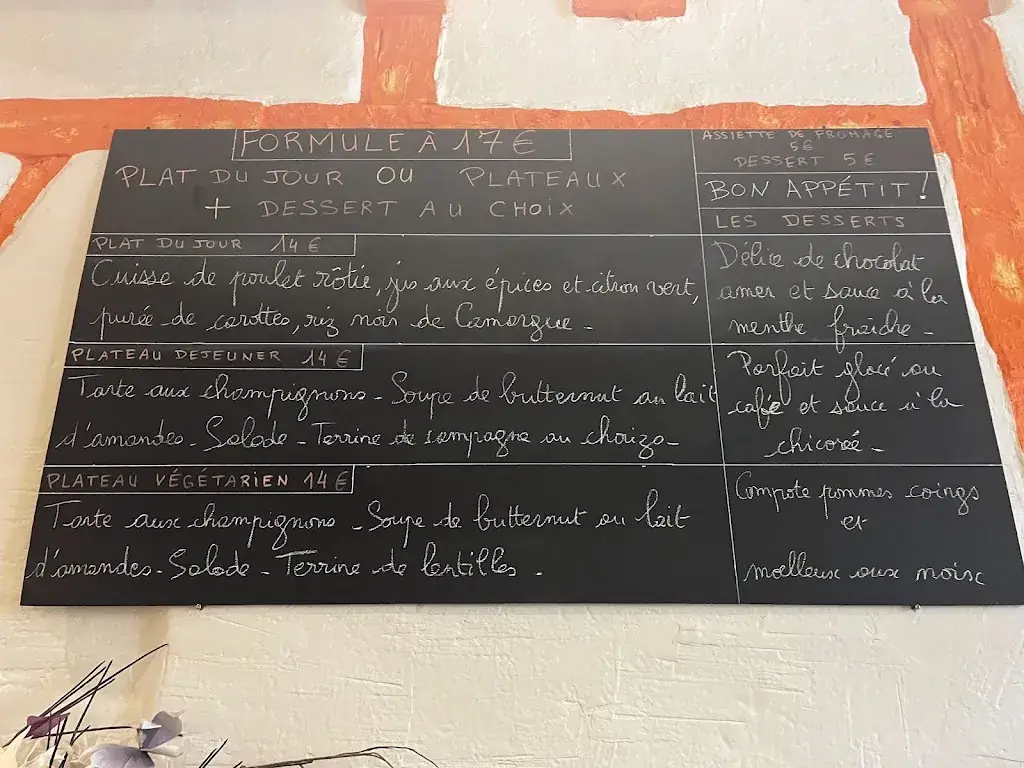 FORMULE À 17€
PLAT DU JOUR OU PLATEAUX
+ DESSERT AU CHOIX
PLAT DU JOUR 14€
Cuisse de poulet rôtie, jus aux épices et citron vert,
purée de carottes, riz noir de Camargue -
PLATEAU DEJEUNER 14€
Tarte aux champignons - Soupe de butternut au lait
d'amandes - Salade - Terrine de campagne au chorizo -
PLATEAU VÉGÉTARIEN 14€
Tarte aux champignons - Soupe de butternut au lait
d'amandes - Salade - Terrine de lentilles -
ASSIETTE DE FROMAGE
5€
DESSERT 5€
BON APPÉTIT !
LES DESSERTS
Délice de chocolat
amer et sauce à la
menthe fraîche -
Parfait glacé au
café et sauce à la
chicorée -
Compote pommes coings
et
moelleux aux noix